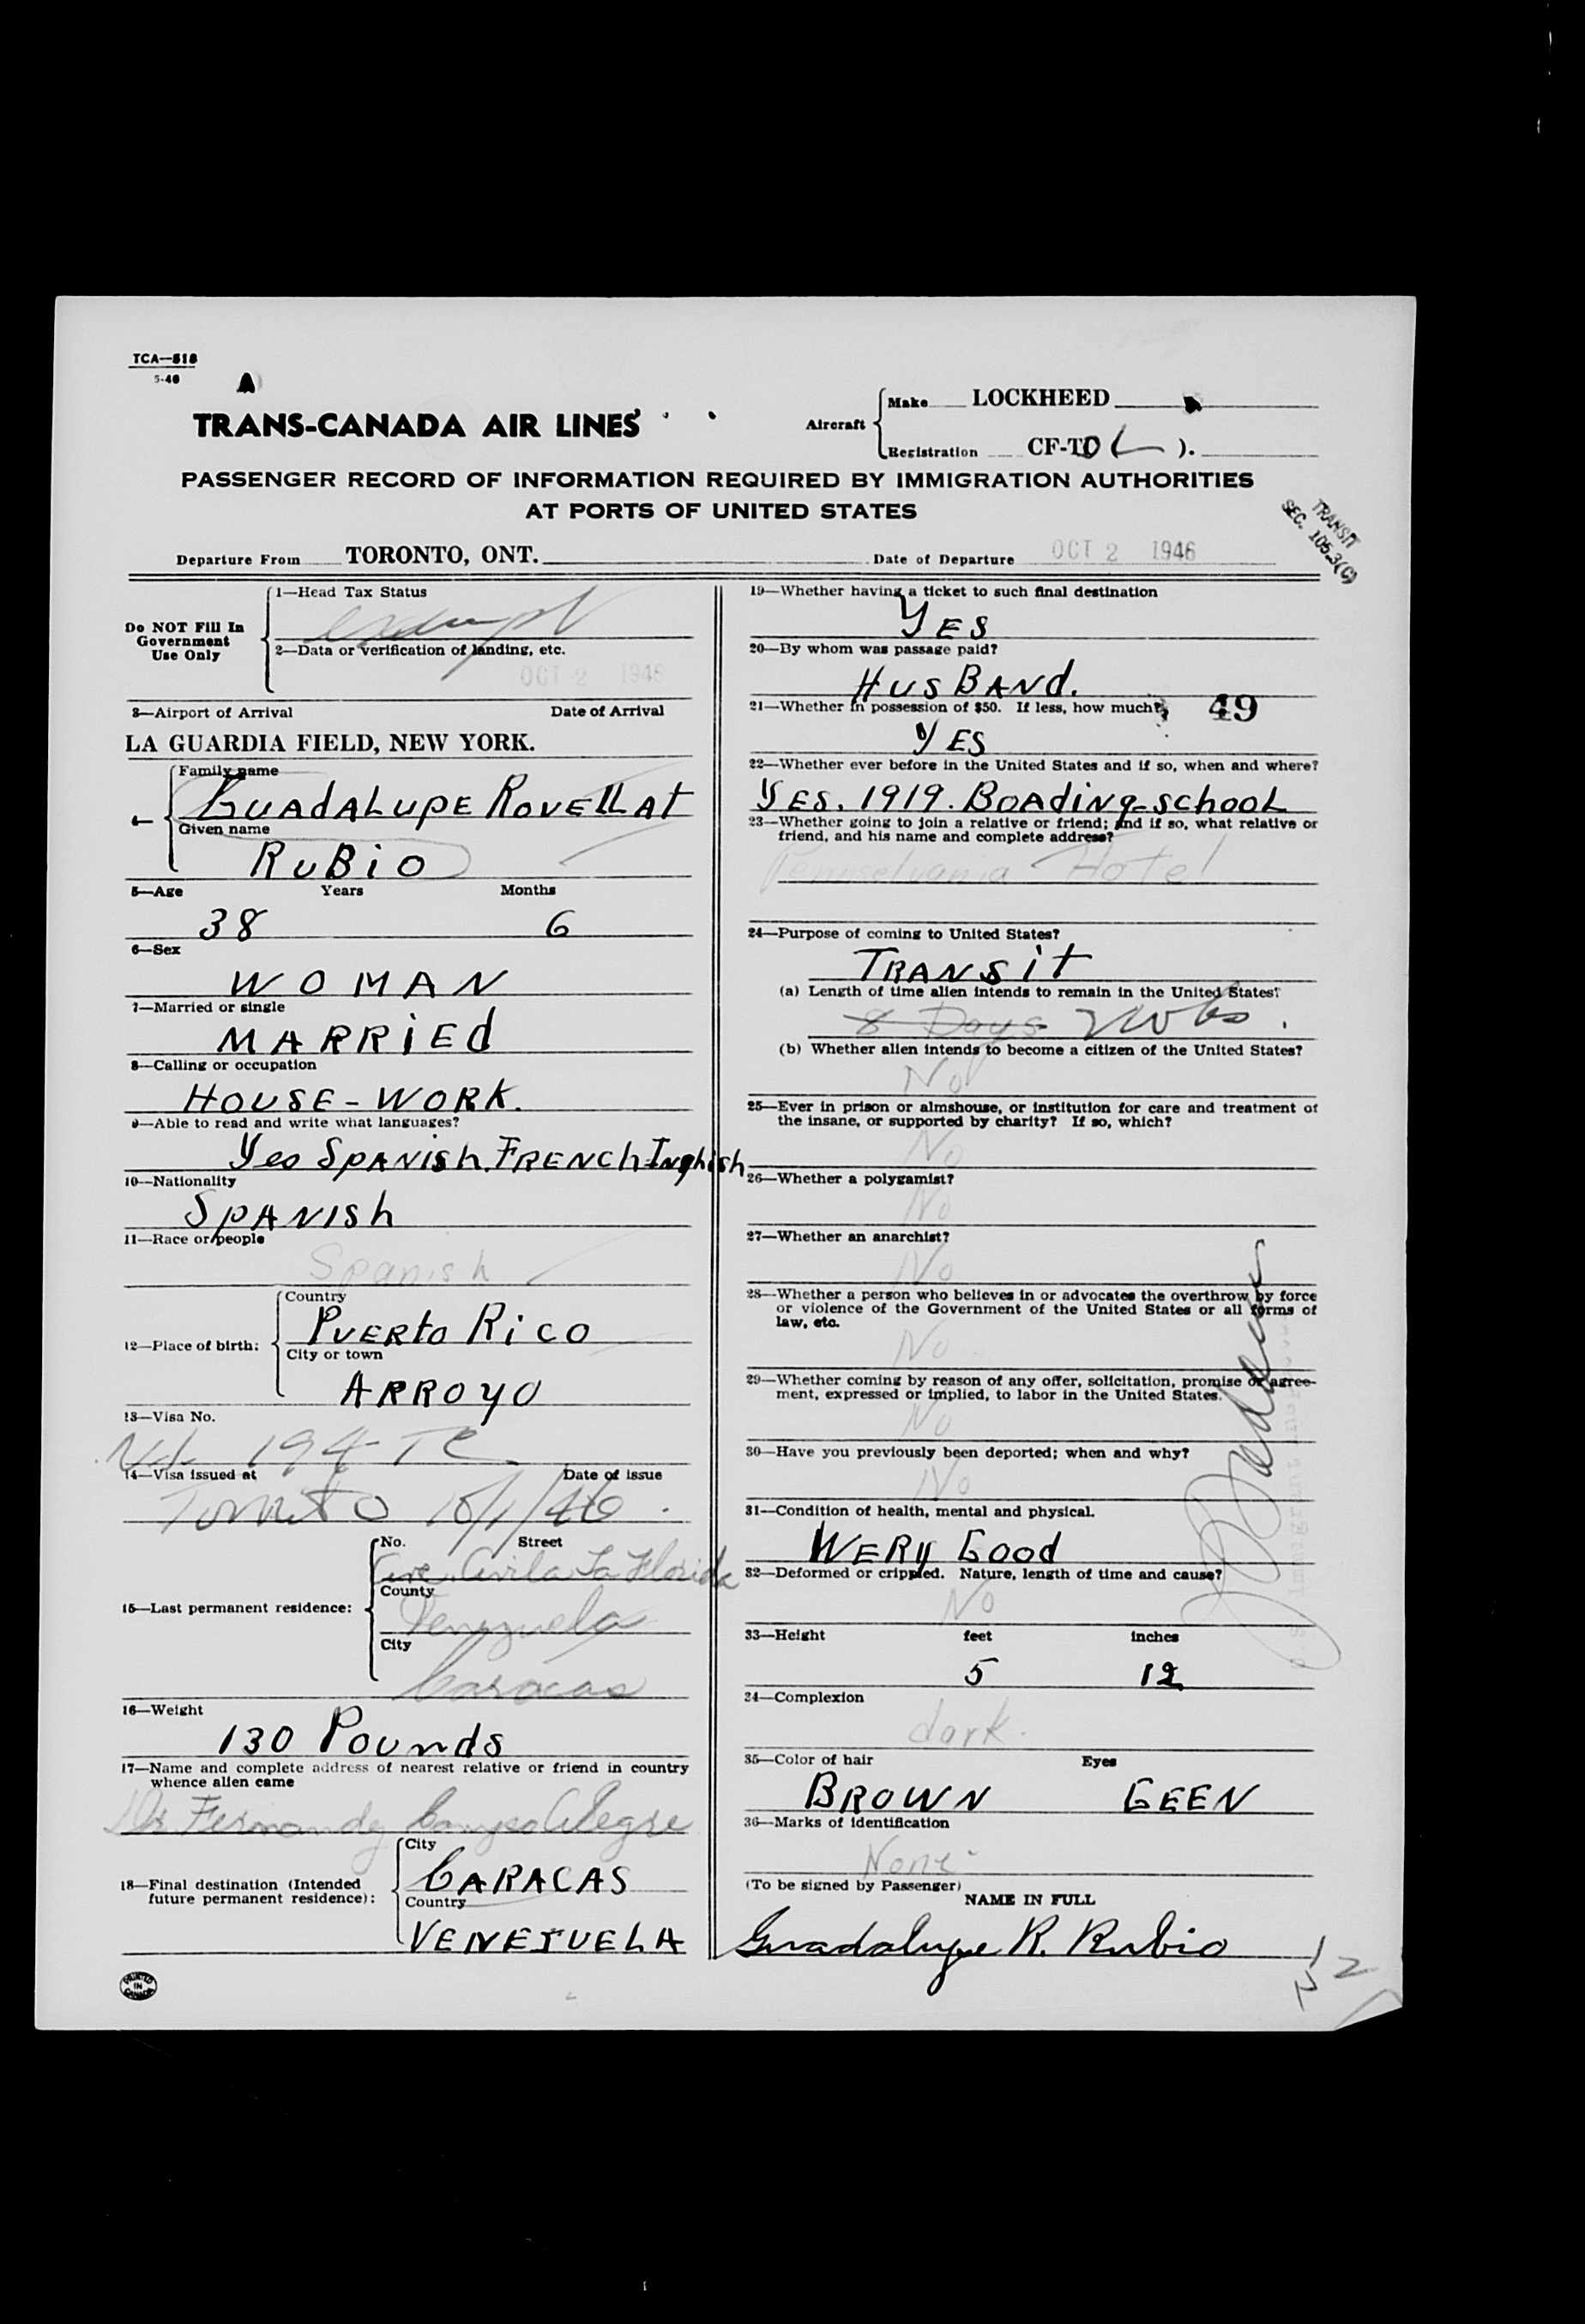 TCA—518
5-46
A
TRANS-CANADA AIR LINES
Aircraft
Make LOCKHEED
Registration CF-TO ( ).
PASSENGER RECORD OF INFORMATION REQUIRED BY IMMIGRATION AUTHORITIES
AT PORTS OF UNITED STATES
TRANSIT
SEC. 105.3(C)
Departure From TORONTO, ONT. Date of Departure OCT 2 1946
Do NOT Fill In
Government
Use Only
1—Head Tax Status
exempt
2—Data or verification of landing, etc.
OCT 2 1946
3—Airport of Arrival Date of Arrival
LA GUARDIA FIELD, NEW YORK.
4—
Family name
GUADALUPE ROVELLAT
Given name
RUBiO
5—Age Years Months
38 6
6—Sex
WOMAN
7—Married or single
MARRiEd
8—Calling or occupation
HOUSE-WORK.
9—Able to read and write what languages?
Yes SPANish. FRENCh-Inghish
10—Nationality
SPANISh
11—Race or people
Spanish
12—Place of birth:
Country
PUERto RiCO
City or town
ARROyO
13—Visa No.
194 TC
14—Visa issued at Date of issue
Toronto 10/1/46
15—Last permanent residence:
No. Street
Ave. Avila La Florida
County
Venezuela
City
Caracas
16—Weight
130 Pounds
17—Name and complete address of nearest relative or friend in country
whence alien came
Dr Fernandy Alegre
18—Final destination (Intended
future permanent residence):
City
CARACAS
Country
VENEZUELA
PRINTED
IN
CANADA
19—Whether having a ticket to such final destination
YES
20—By whom was passage paid?
HUSBANd.
21—Whether in possession of $50. If less, how much? 49
YES
22—Whether ever before in the United States and if so, when and where?
YES. 1919. BOADiNg-SchooL
23—Whether going to join a relative or friend; and if so, what relative or
friend, and his name and complete address?
Pennselvania Hotel
24—Purpose of coming to United States?
TRANSit
(a) Length of time alien intends to remain in the United States?
8 Days 2 wks.
(b) Whether alien intends to become a citizen of the United States?
No
25—Ever in prison or almshouse, or institution for care and treatment of
the insane, or supported by charity? If so, which?
No
26—Whether a polygamist?
No
27—Whether an anarchist?
No
28—Whether a person who believes in or advocates the overthrow by force
or violence of the Government of the United States or all forms of
law, etc.
No
29—Whether coming by reason of any offer, solicitation, promise or agree-
ment, expressed or implied, to labor in the United States.
No
30—Have you previously been deported; when and why?
No
31—Condition of health, mental and physical.
WERy Good
32—Deformed or crippled. Nature, length of time and cause?
No
33—Height feet inches
5 12
34—Complexion
dark.
35—Color of hair Eyes
BROWN GEEN
36—Marks of identification
None
(To be signed by Passenger)
NAME IN FULL
Guadalupe R. Rubio